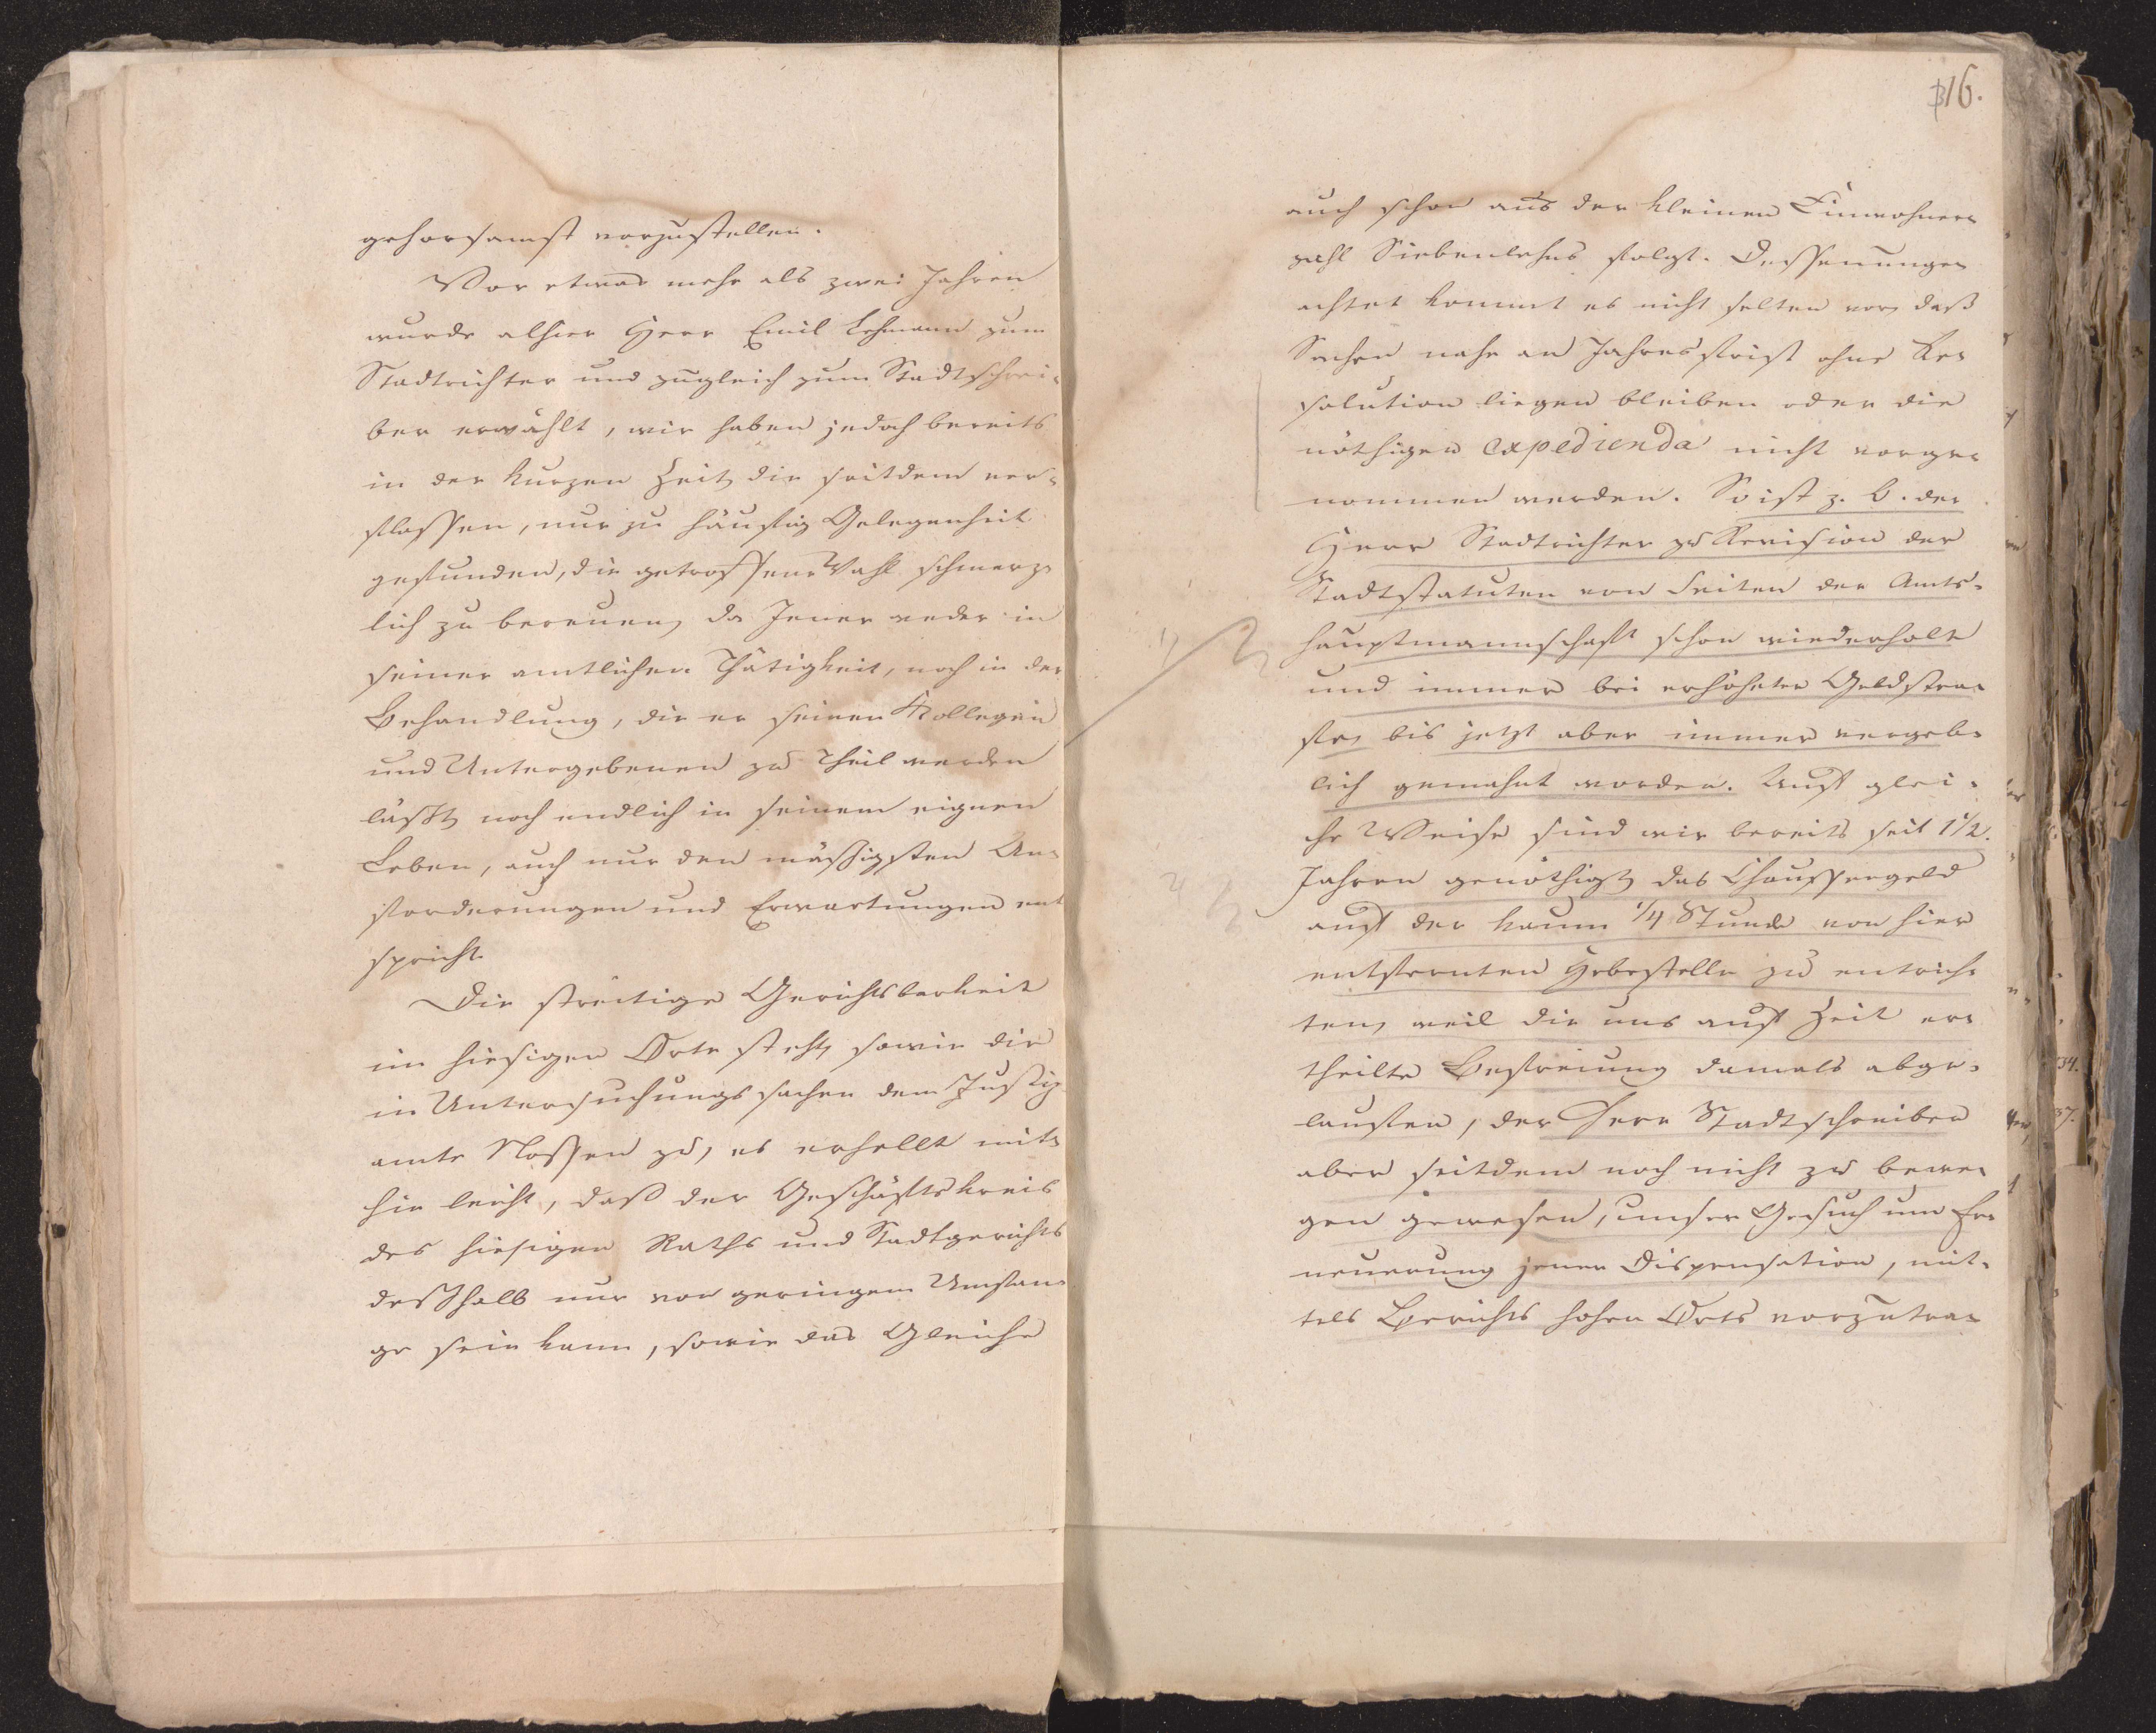 gehorsamst vorzustellen.
Vor etwas mehr als zwei Jahren
wurde alhier Herr Emil Lehmann zum
Stadtrichter und zugleich zum Stadtschrei-
ber erwählt, wir haben jedoch bereits
in der kurzen Zeit, die seitdem ver-
flossen, nur zu häufig Gelegenheit
gefunden, die getroffene Wahl schmerz-
lich zu bereuen, da Jener weder in
seiner amtlichen Thätigkeit, noch in der
Behandlung, die er seinen Kollegen
und Untergebenen zu Theil werden
läßt, noch endlich in seinem eignen
Leben, auch nur den mäßigsten An-
forderungen und Erwartungen ent
spricht.
Die streitige Gerichtsbarkeit
im hiesigen Orte steht, sowie die
in Untersuchungssachen dem Justiz-
amte Nossen zu, es erhellt mit-
hin leicht, daß der Geschäftskreis
des hiesigen Raths und Stadtgerichts
deßhalb nur von geringem Umfan-
ge sein kann, sowie das Gleiche
16.
auch schon aus der kleinen Einwohner-
zahl Siebenlehns folgt. Dessenunge-
achtet kommt es nicht selten vor, daß
Sachen nahe an Jahresfrist ohne Re-
solution liegen bleiben oder die
nöthigen expedienda nicht vorge-
nommen werden. So ist z. B. der
Herr Stadtrichter zu Revision der
Stadtstatuten von Seiten der Amts-
hauptmannschaft schon wiederholt
und immer bei erhöhter Geldstra-
fe, bis jetzt aber immer vergeb-
lich gemahnt worden. Auf glei-
che Weise sind wir bereits seit 1 1/2.
Jahren genöthigt, das Chausseegeld
auf der kaum 1/4 Stunde von hier
entfernten Hebestelle zu entrich-
ten, weil die uns auf Zeit er-
theilte Befreiung damals abge-
laufen, der Herr Stadtschreiber
aber seitdem noch nicht zu bewe-
gen gewesen, unser Gesuch um Er-
neuerung jener Dispensation, mit-
tels Berichts hohen Orts vorzutra-